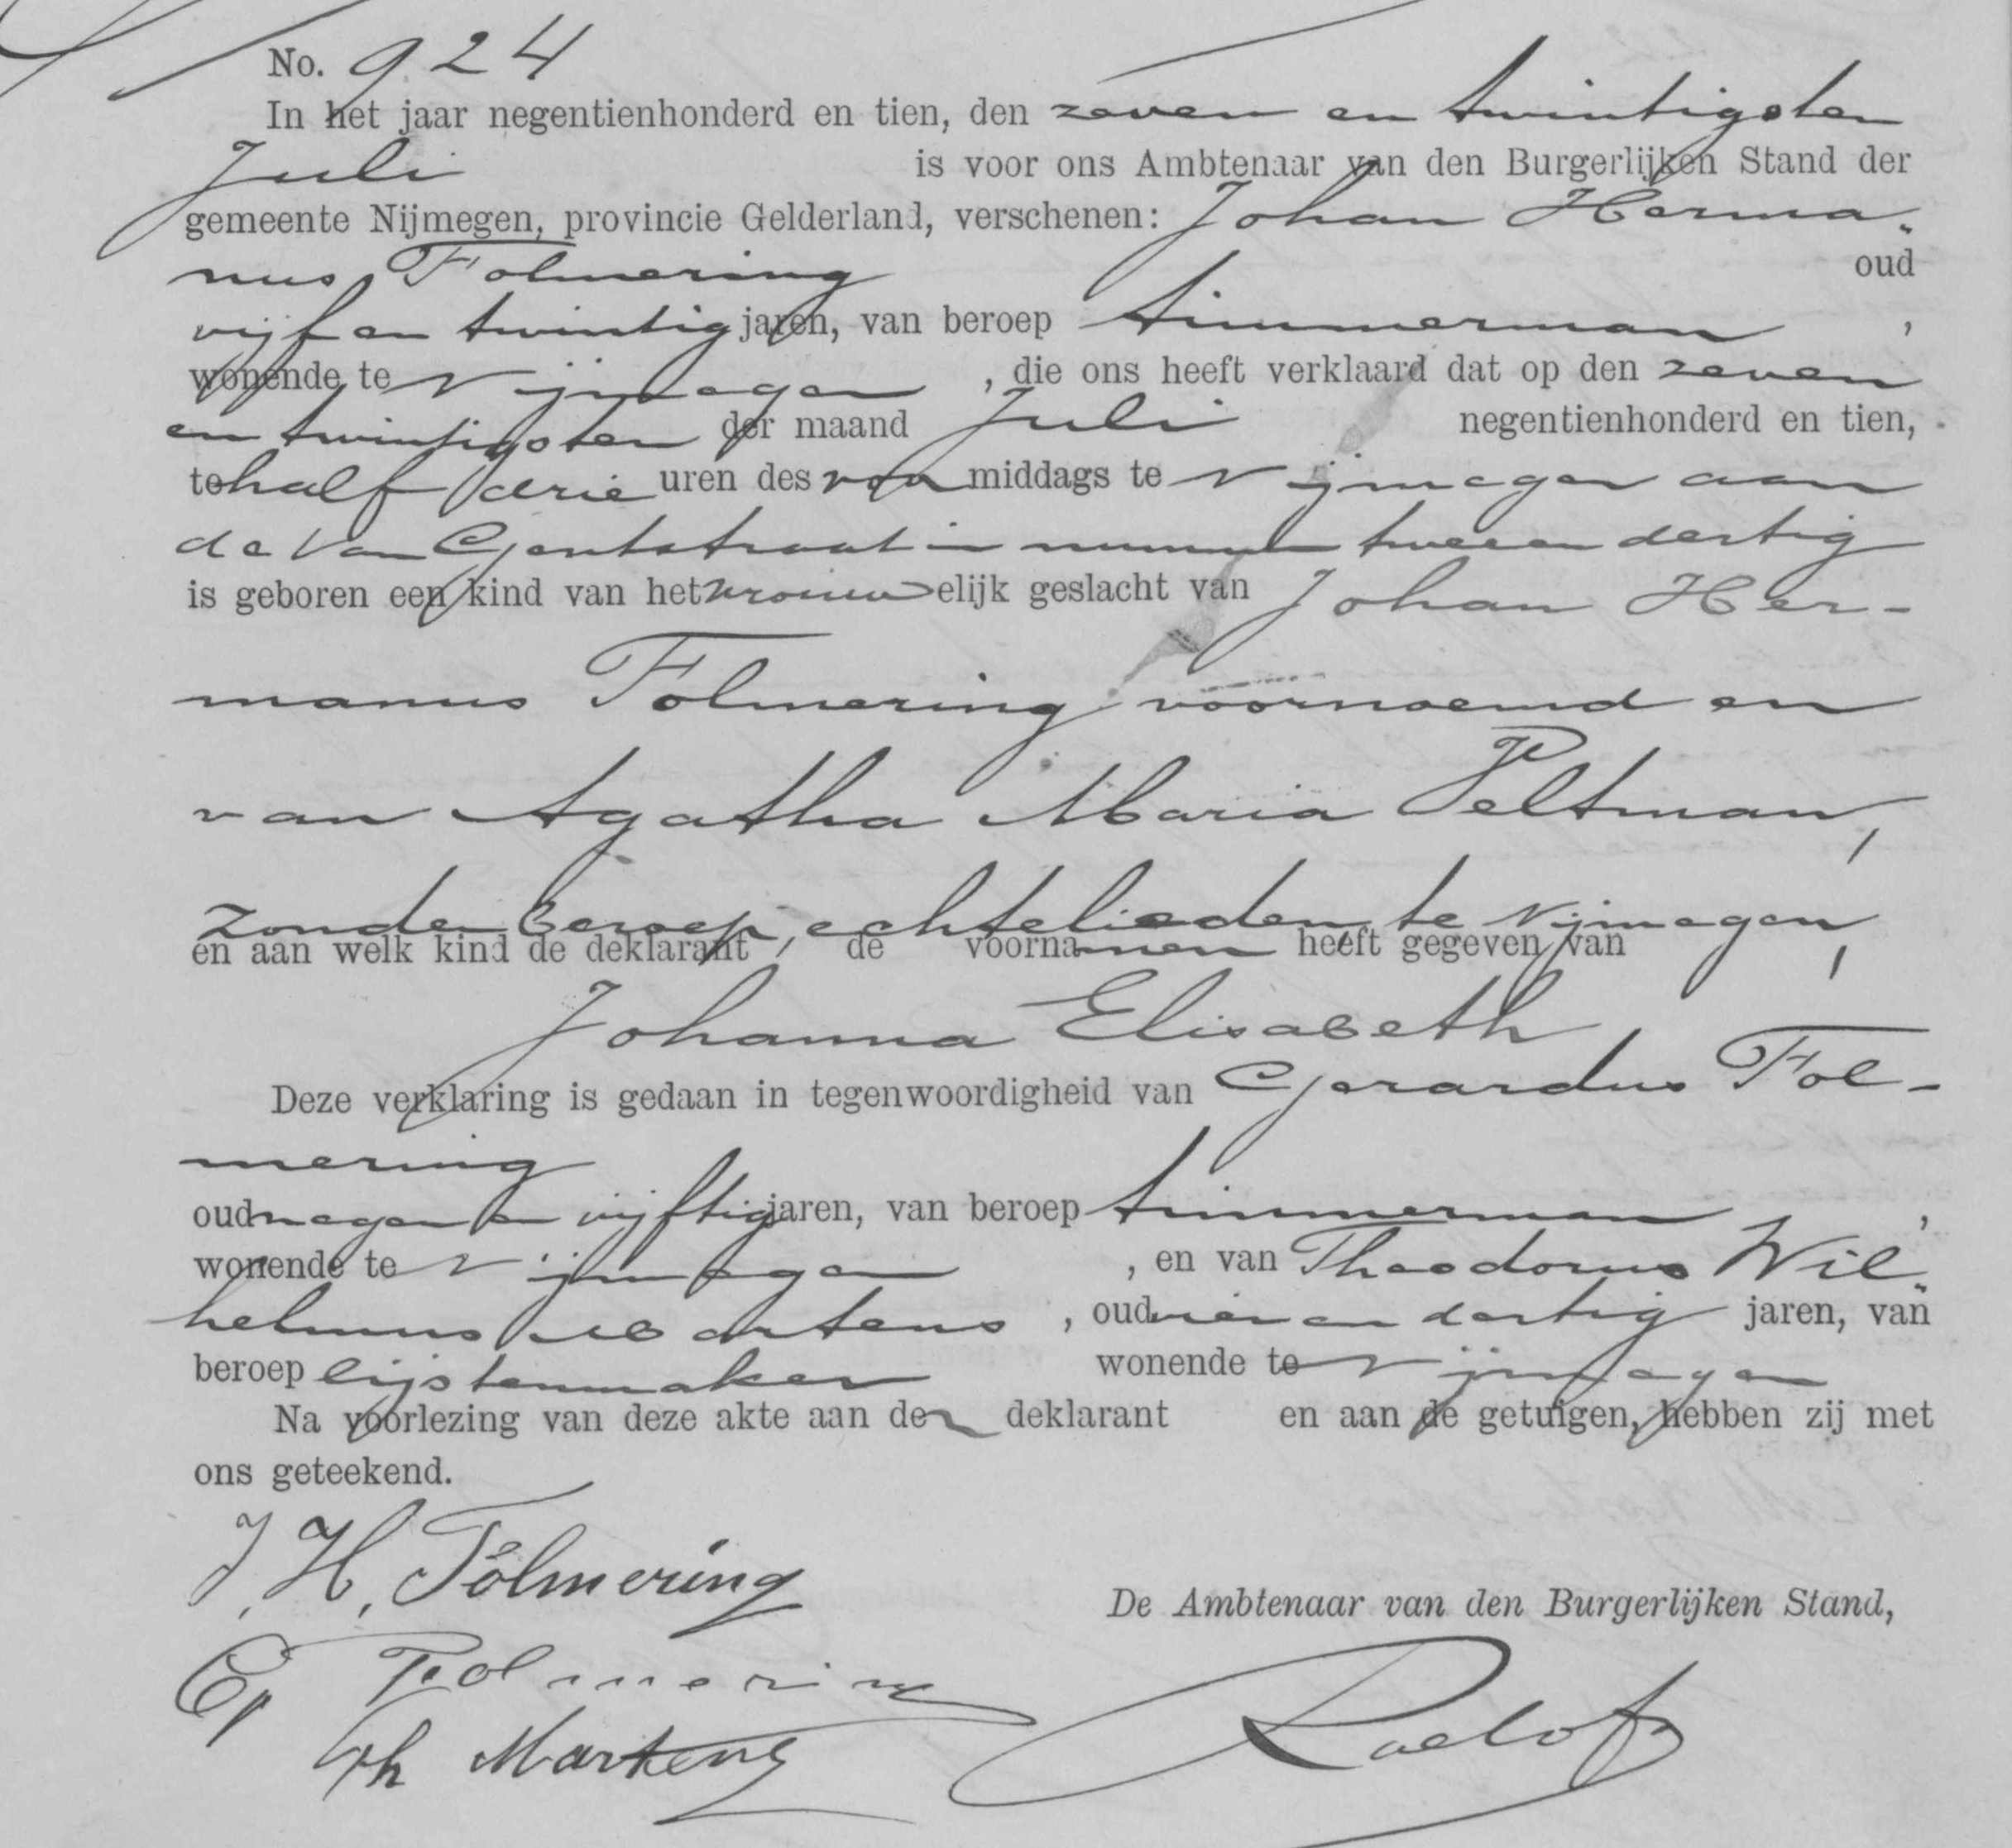 No. 924
In het jaar negentienhonderd en tien, den zeven en twintigsten
Juli is voor ons Ambtenaar van den Burgerlijken Stand der
gemeente Nijmegen, provincie Gelderland, verschenen: Johan Herma„
nus Folmering oud
vijf en twintig jaren, van beroep timmerman ,
wonende te Nijmegen , die ons heeft verklaard dat op den zeven
en twintigsten der maand Juli negentienhonderd en tien,
te half drie uren des voormiddags te Nijmegen aan
de Van Gentstraat in nummer twee en dertig
is geboren een kind van het vrouwelijk geslacht van Johan Her-
manus Folmering voornoemd en
van Agatha Maria Peltman,
zonder beroep, echtelieden, te Nijmegen,
en aan welk kind de deklarant de voornamen heeft gegeven van
Johanna Elisabeth
Deze verklaring is gedaan in tegenwoordigheid van Gerardus Fol-
mering
oud negen en vijftig jaren, van beroep timmerman ,
wonende te Nijmegen , en van Theodorus Wil„
helmus Martens , oud vier en dertig jaren, van
beroep lijstenmaker wonende te Nijmegen
Na voorlezing van deze akte aan den deklarant en aan de getuigen, hebben zij met
ons geteekend.
J. H. Folmering
De Ambtenaar van den Burgerlijken Stand,
G Folmering
Th Martens
Roelofs